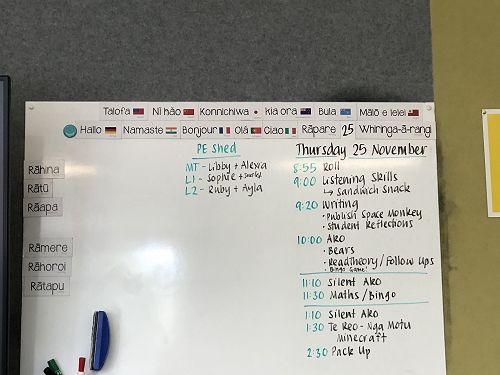 Talofa Nǐ hǎo Konnichiwa Kia ora Bula Mālō e lelei
Hallo Namaste Bonjour Olá Ciao Rāpare 25 Whiringa-ā-rangi
Rāhina
Rātū
Rāapa
Rāmere
Rāhoroi
Rātapu
PE Shed
MT - Libby + Alexia
L1 - Sophie +
L2 - Ruby + Ayla
Thursday 25 November
8:55 Roll
9:00 Listening Skills
↳ Sandwich Snack
9:20 Writing
• Publish Space Monkey
• Student Reflections
10:00 Ako
• Bears
• ReadTheory/Follow Ups
• Bingo Game!
11:10 Silent Ako
11:30 Maths/Bingo
1:10 Silent Ako
1:30 Te Reo - Nga Motu
Minecraft
2:30 Pack Up